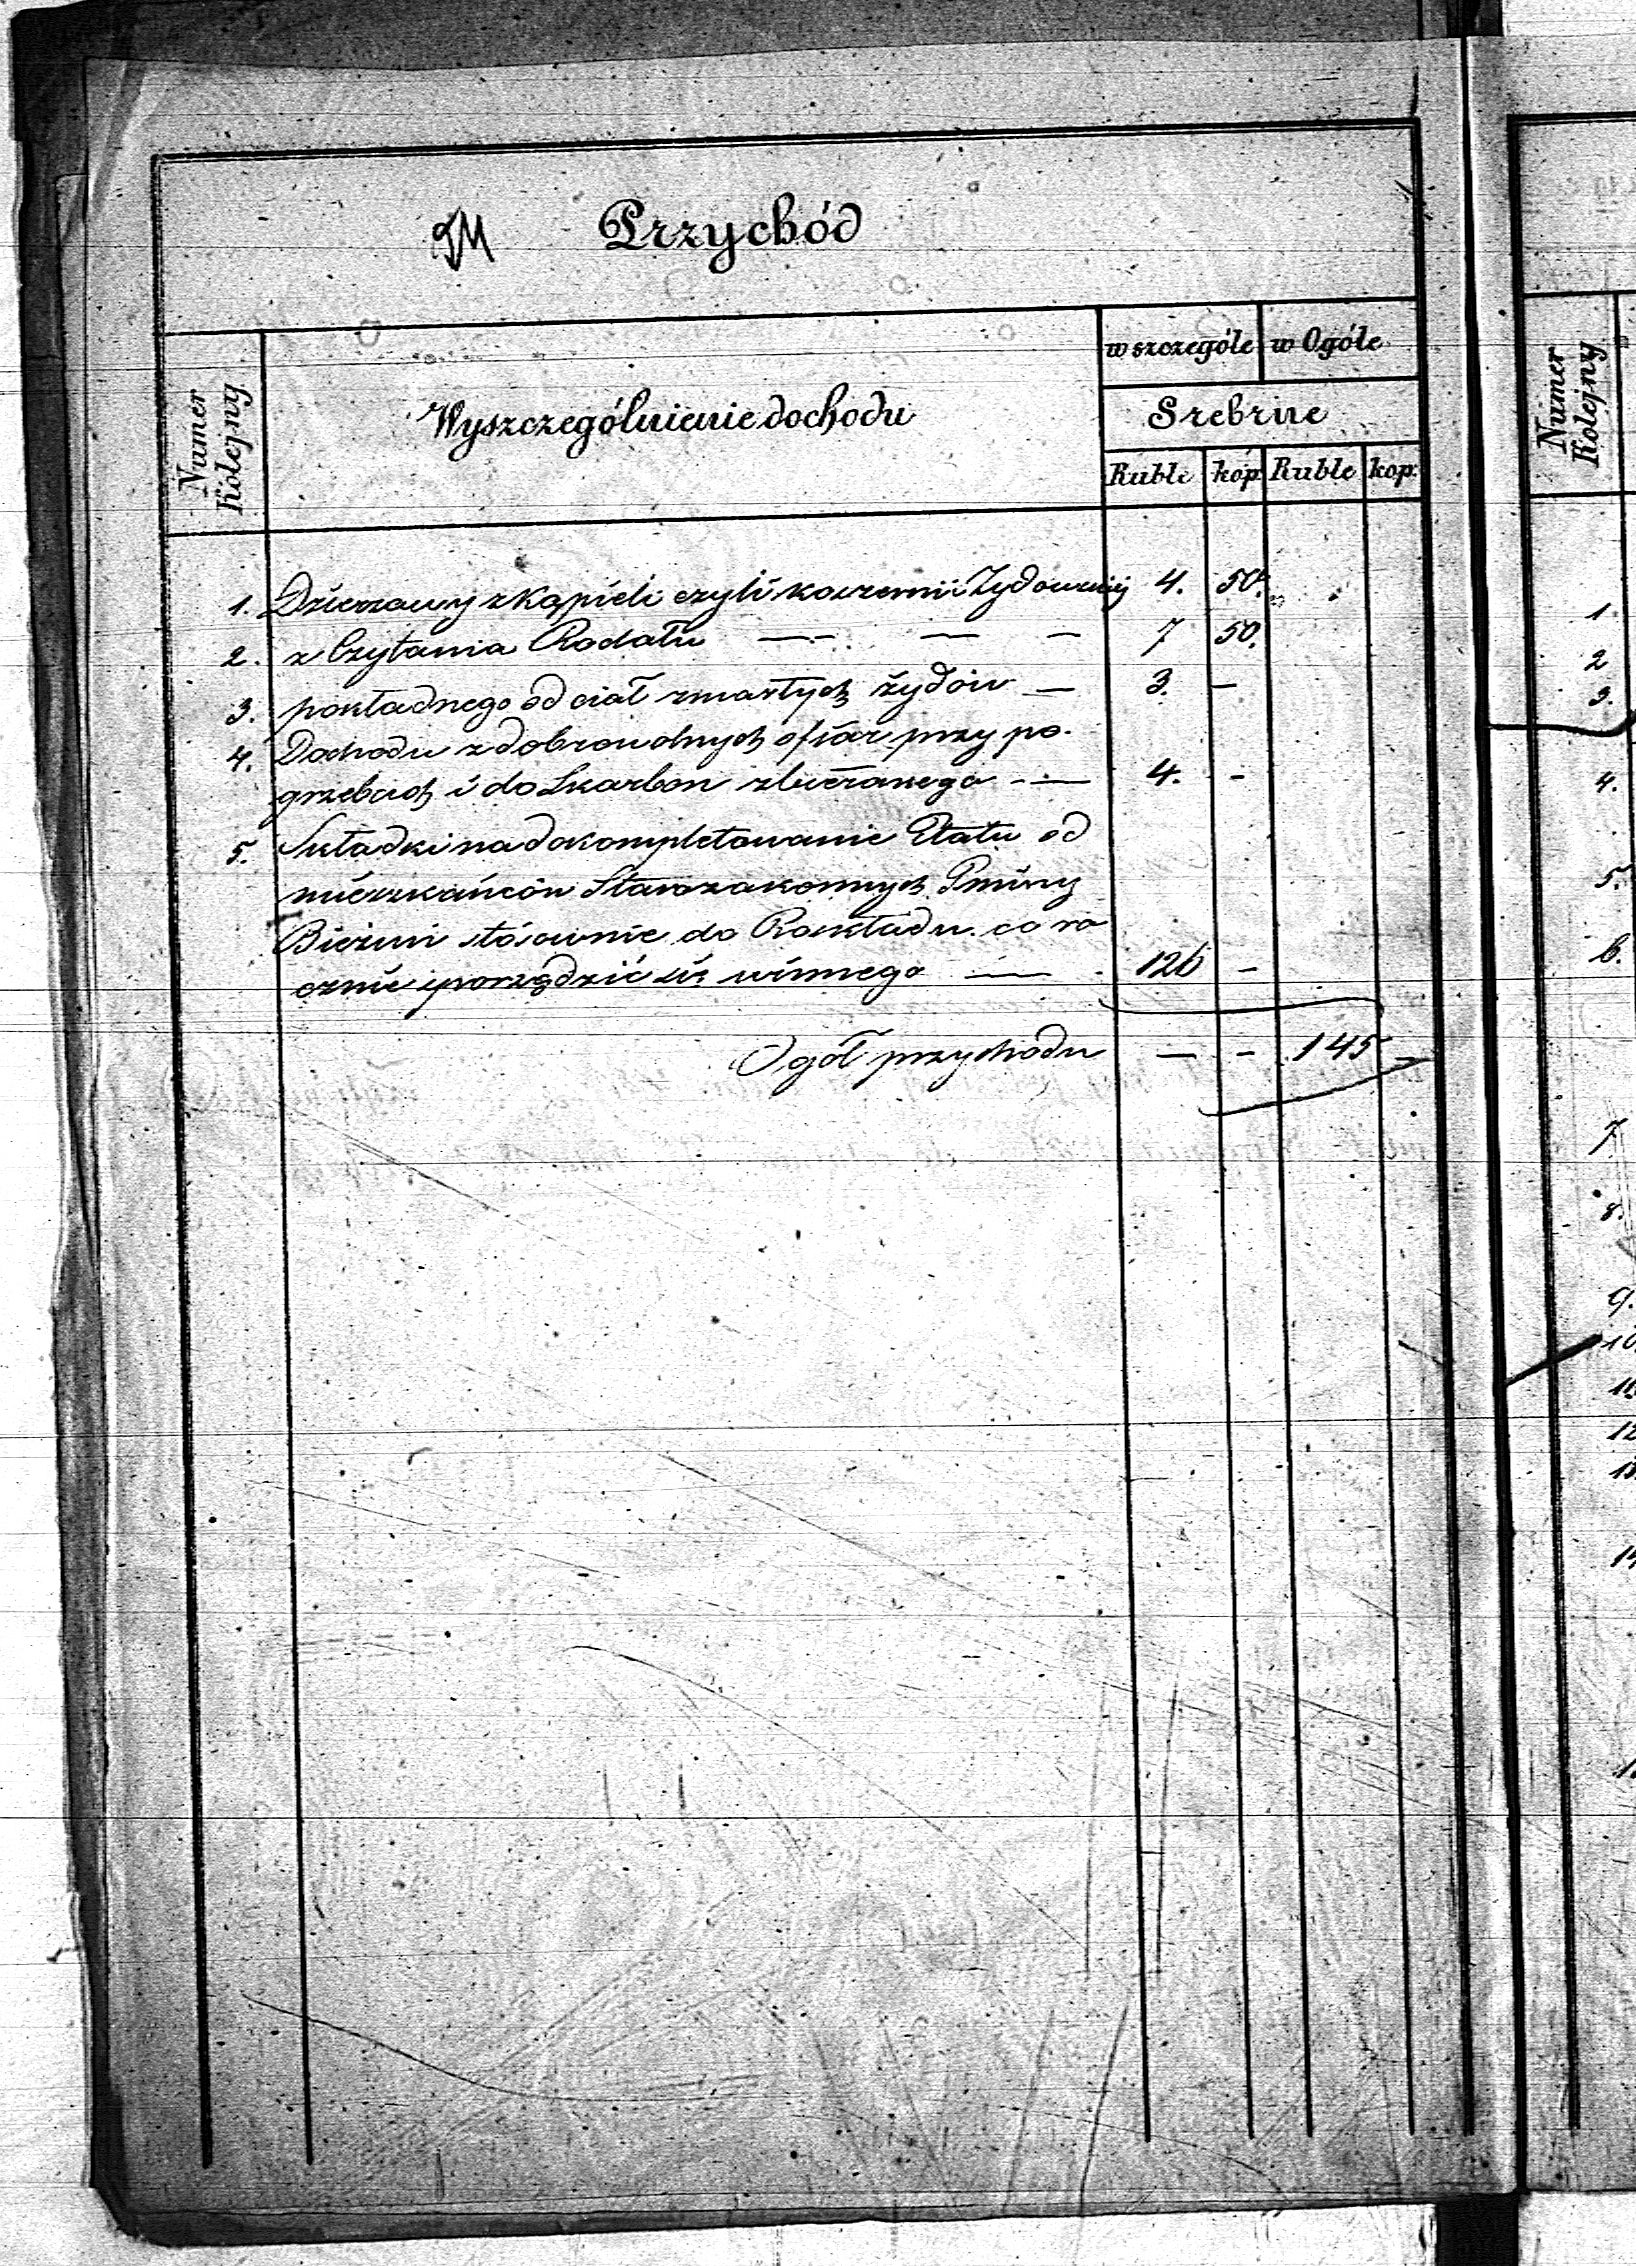 Przychód
Numer Kolejny
Wyszczególnienie dochodu
w szczególe w Ogóle
Srebrne
Ruble kop Ruble kop.
1. Dzierzawy z kąpieli czyli koszernii Żydowskiej 4. 50.
2. z Czytania Rodału — — — 7 50.
3. pokładnego od ciał zmarłych żydów — 3. —
4. Dochodu z dobrowolnych ofiar przy po-
grzebach i do Skarbon zbieranego — 4. -
5. Składki na dokompletowanie Etatu od
mieszkańców Starozakonnych Gminy
Bieżuń stósownie do Rozkładu co ro
cznie sporządzić się winnego — 126 -
Ogół przychodu — - 145 -
Numer Kolejny
1.
2
3.
4.
5.
6.
7
8.
9.
10
11
12
13
14